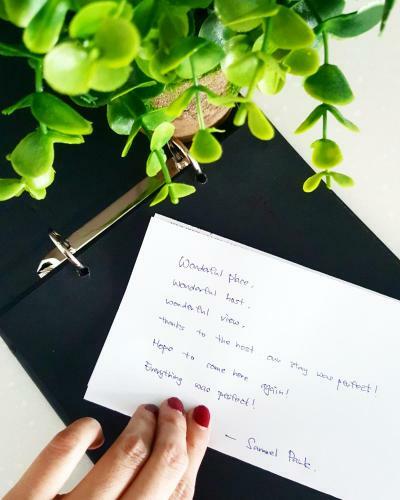 Wonderful place.
Wonderful host.
wonderful view.
thanks to the host our stay was perfect!
Hope to come here again!
Everything was perfect!
— Samuel Park.